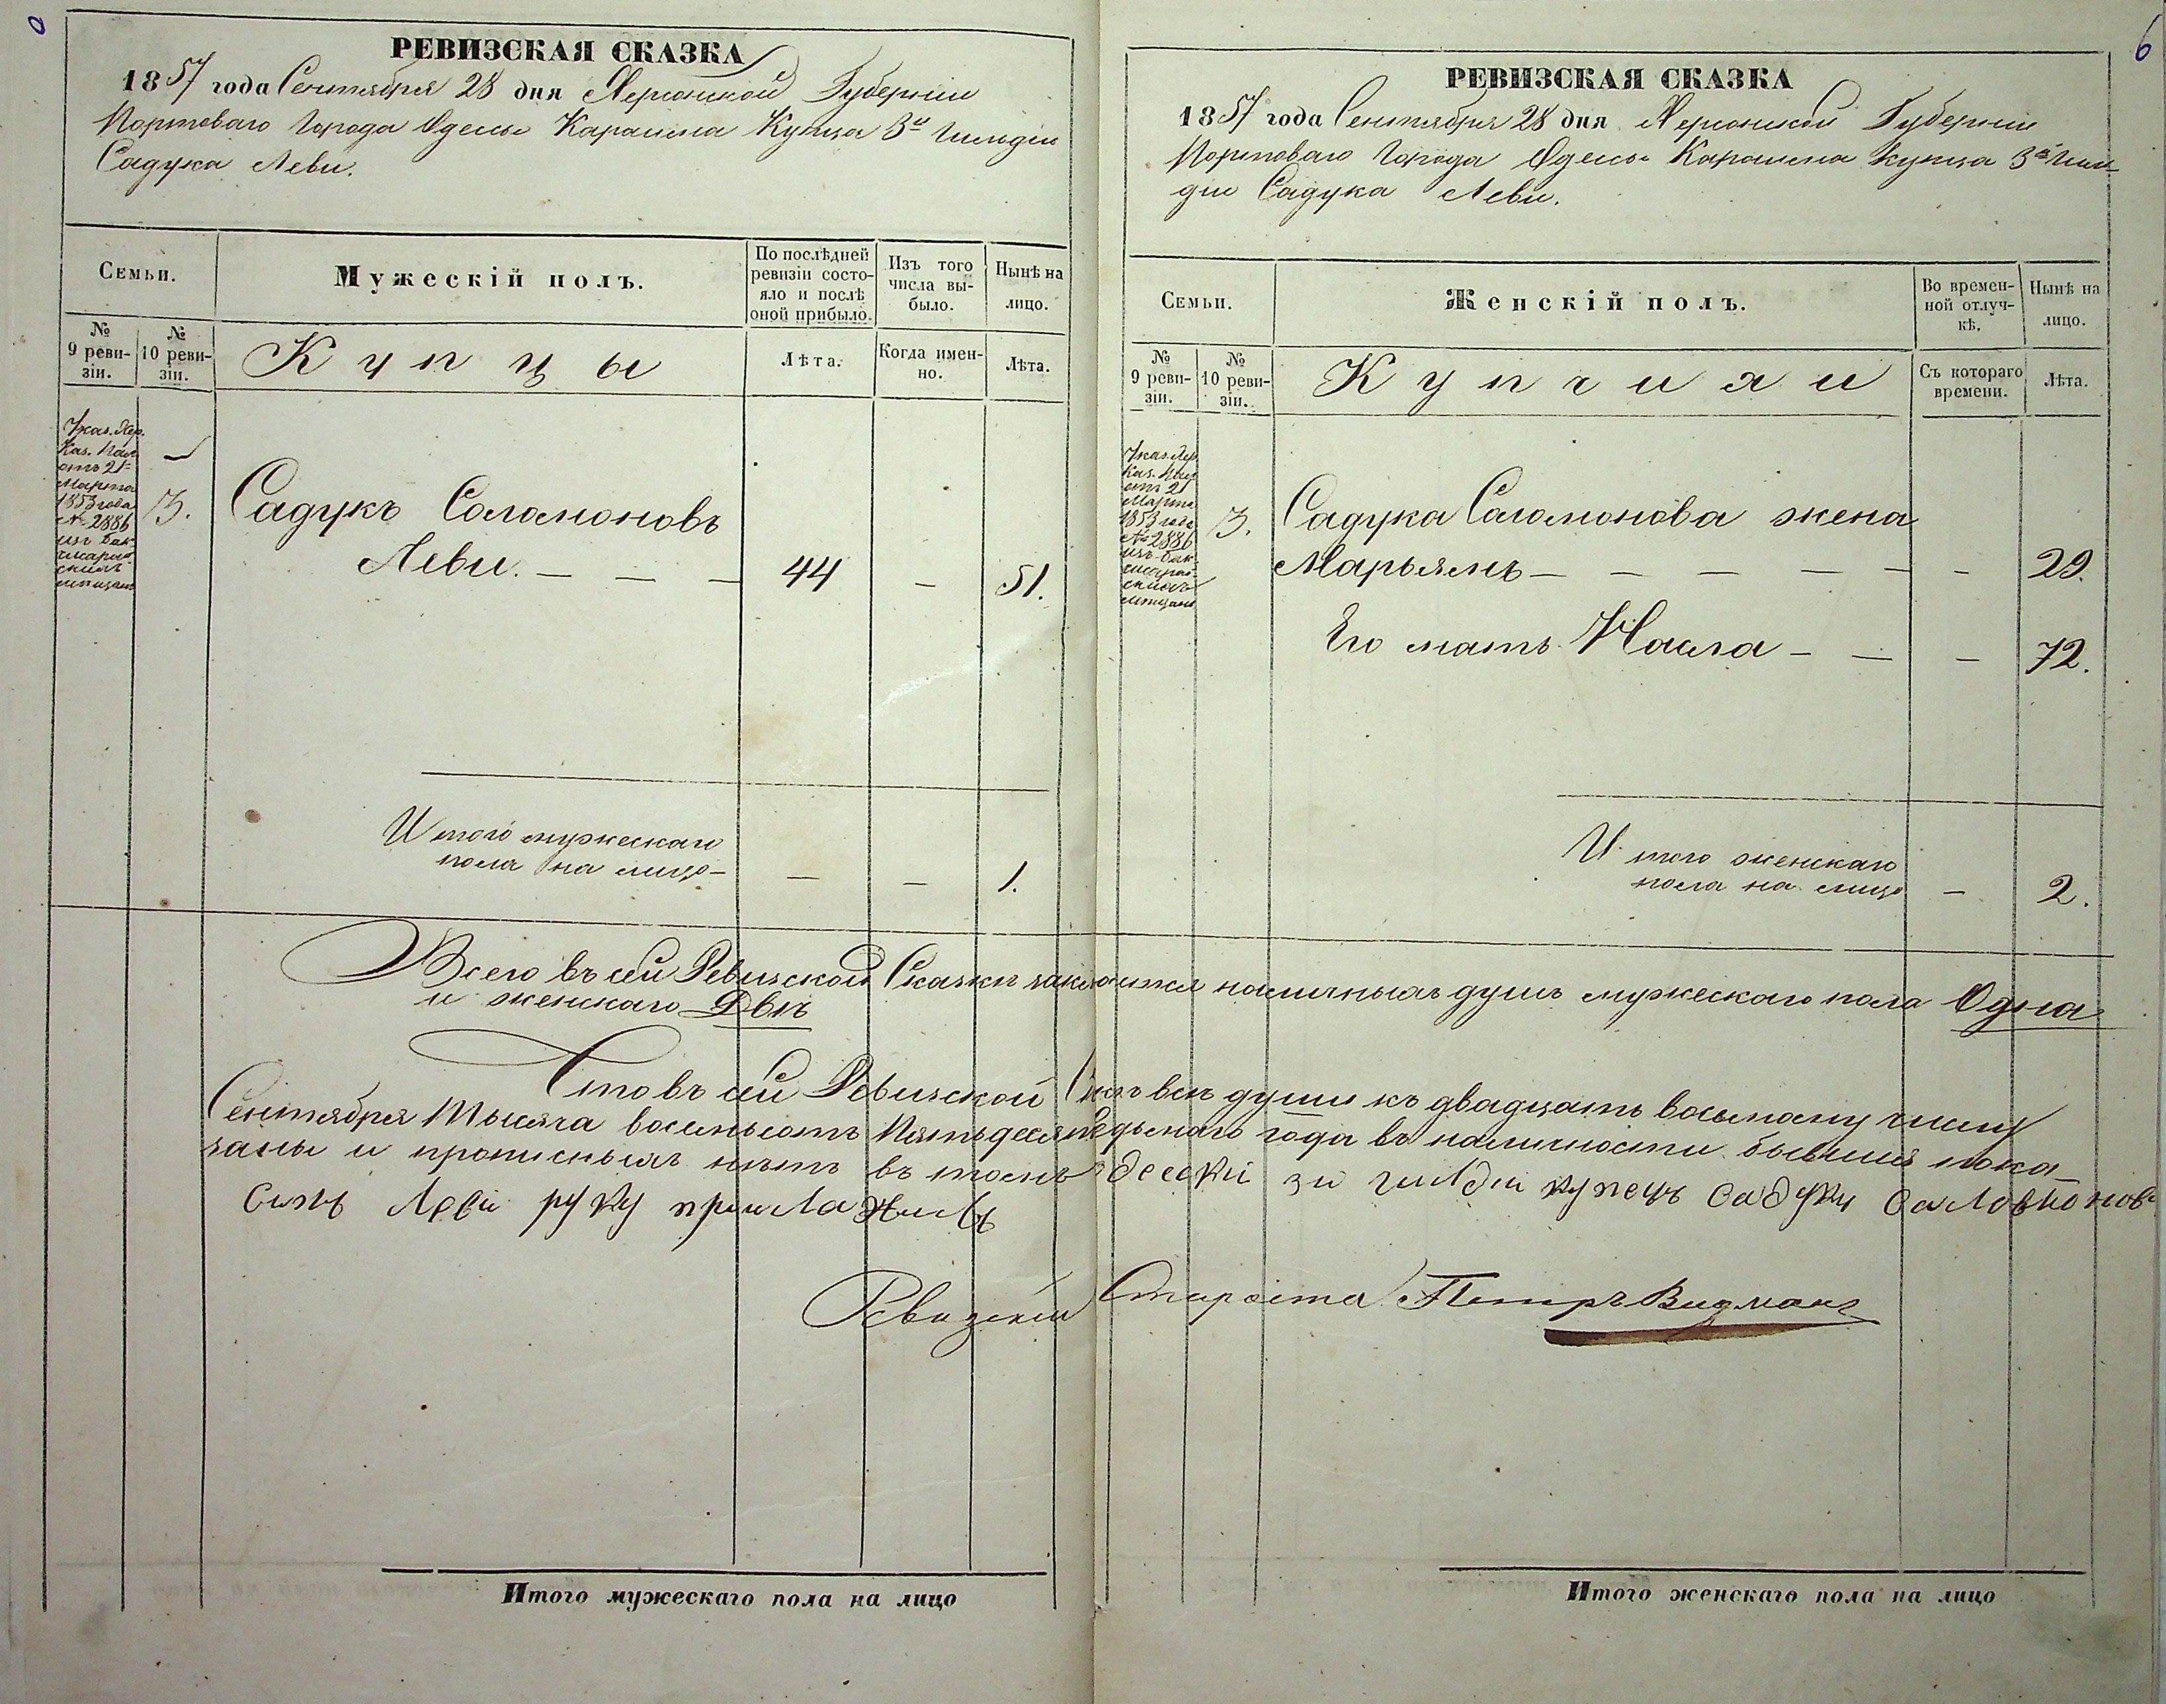 6
РЕВИЗСКАЯ СКАЗКА
1857 года Сентября 28 дня Херсонской Губерніи
Портоваго Города Одессы Караима Купца 3й Гильдіи
Садука Леви.
Семьи.
Мужескій полъ.
По послѣдней
ревизіи состо-
яло и послѣ
оной прибыло.
Изъ того
числа вы-
было.
Нынѣ на
лицо.
№
9 реви-
зіи.
№
10 реви-
зіи.
Купцы
Лѣта.
Когда имен-
но.
Лѣта.
Указ. Хер.
Каз. Пал
отъ 21
Марта
1853 года
№ 2886
изъ бак-
чисарай-
скихъ
мѣщанъ
3.
Садукъ Соломоновъ
Леви. — — — 44 — 51.
Итого мужескаго
пола на лицо — — — 1.
РЕВИЗСКАЯ СКАЗКА
1857 года Сентября 28 дня Херсонской Губерніи
Портоваго Города Одессы Караима Купца 3й Гиль-
діи Садука Леви.
Семьи.
Женскій полъ.
Во времен-
ной отлуч-
кѣ.
Нынѣ на
лицо.
№
9 реви-
зіи.
№
10 реви-
зіи.
Купчихи
Съ котораго
времени.
Лѣта.
Указ. Хер
Каз. Пал
отъ 21
Марта
1853 года
№ 2886
изъ бак-
чисарай-
скихъ
мѣщанъ
3.
Садука Соломонова жена
Марьямъ — — — — — — 29.
Его мать — — — 72.
Итого женскаго
пола на лицо — 2.
Всего въ сей Ревизской Сказки заключается наличныхъ душъ мужескаго пола Одна
и женскаго Двѣ
Что въ сей Ревизской всѣ души къ двадцать восьмому числу
Сентября Тысяча восемьсотъ Пятьдесят Седьмаго года въ наличности бывшия пока-
заны и прописныхъ нѣтъ въ томъ Одески 3й гилдіи купецъ Садукъ Саломонов
сынъ Леви руку приложилъ
Ревизскій Староста Петръ Видманъ
Итого мужескаго пола на лицо
Итого женскаго пола на лицо